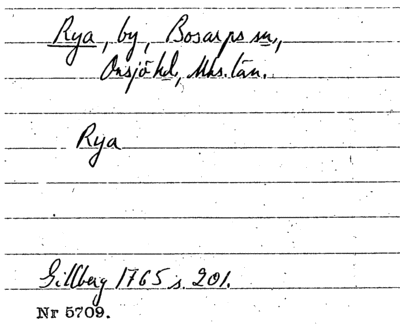 Rya, by, Bosarps sn,
Onsjö hd, Mhs. län.
Rya
Gillberg 1765 s. 201.
Nr 5709.